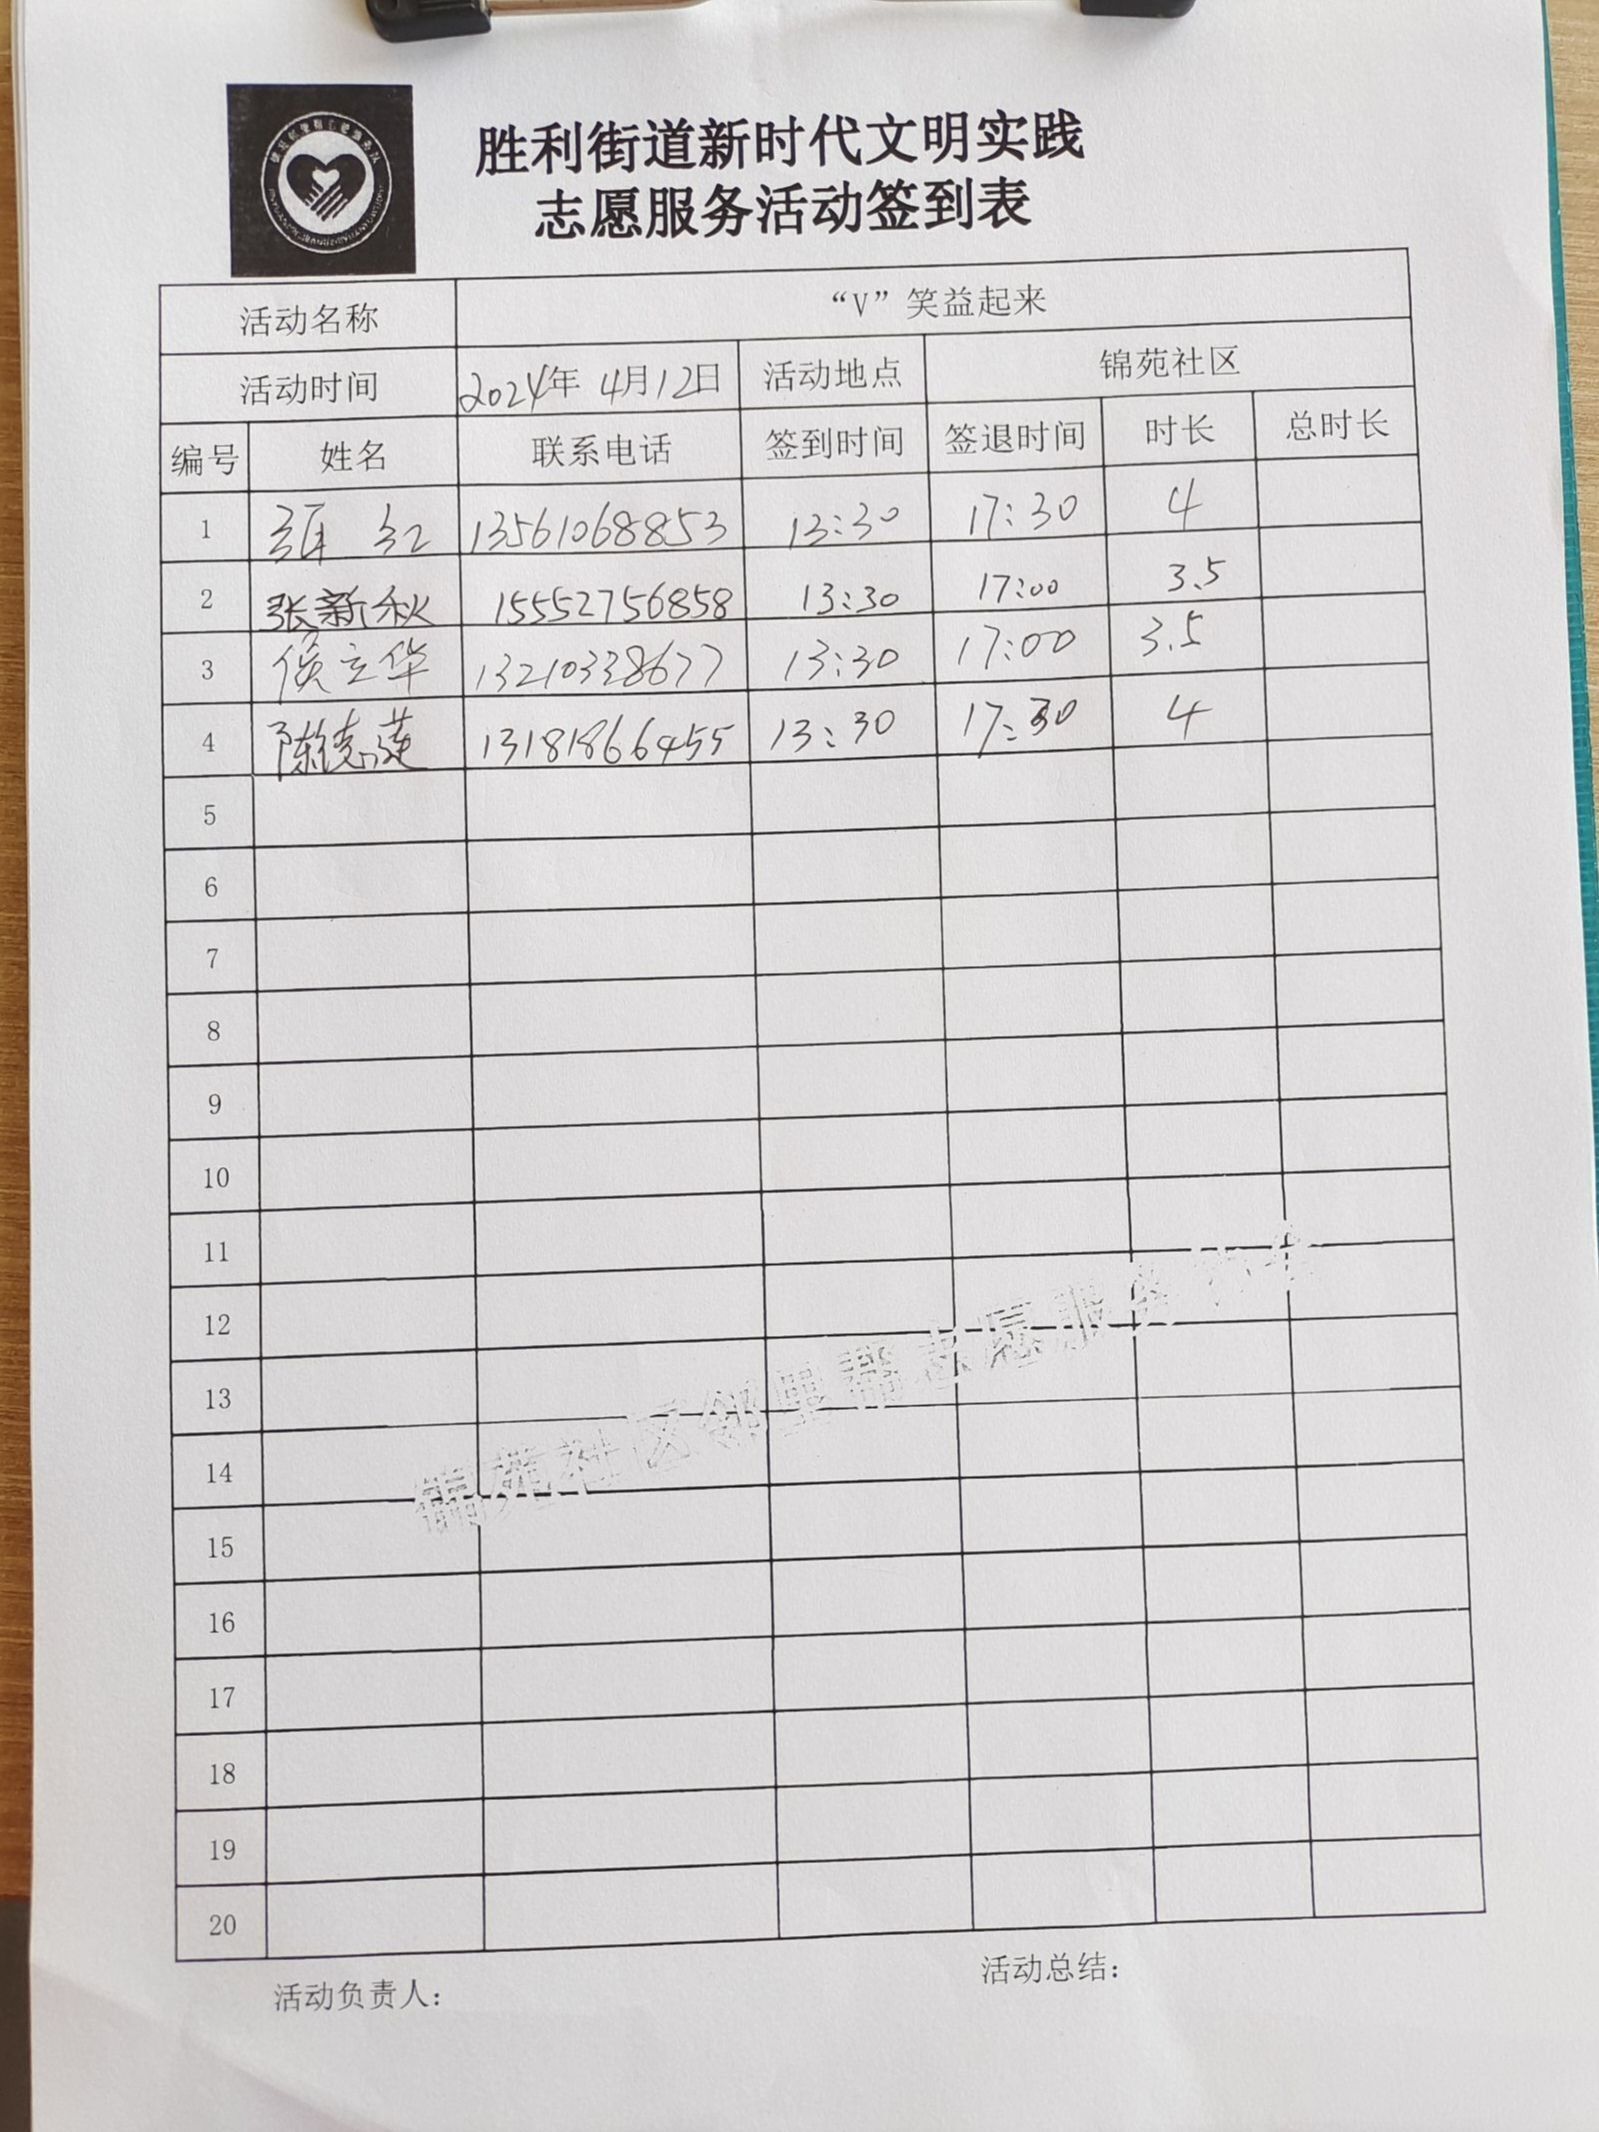 胜利街道新时代文明实践
志愿服务活动签到表
活动名称 “V”笑益起来
活动时间 2024年 4月12日 活动地点 锦苑社区
编号 姓名 联系电话 签到时间 签退时间 时长 总时长
1 红 13561068853 13:30 17:30 4
2 张新秋 15552756858 13:30 17:00 3.5
3 侯立华 13210338677 13:30 17:00 3.5
4 陈德莲 13181866455 13:30 17:30 4
5
6
7
8
9
10
11
12
13
14
15
16
17
18
19
20
锦苑社区邻里帮志愿服务
活动负责人：
活动总结：